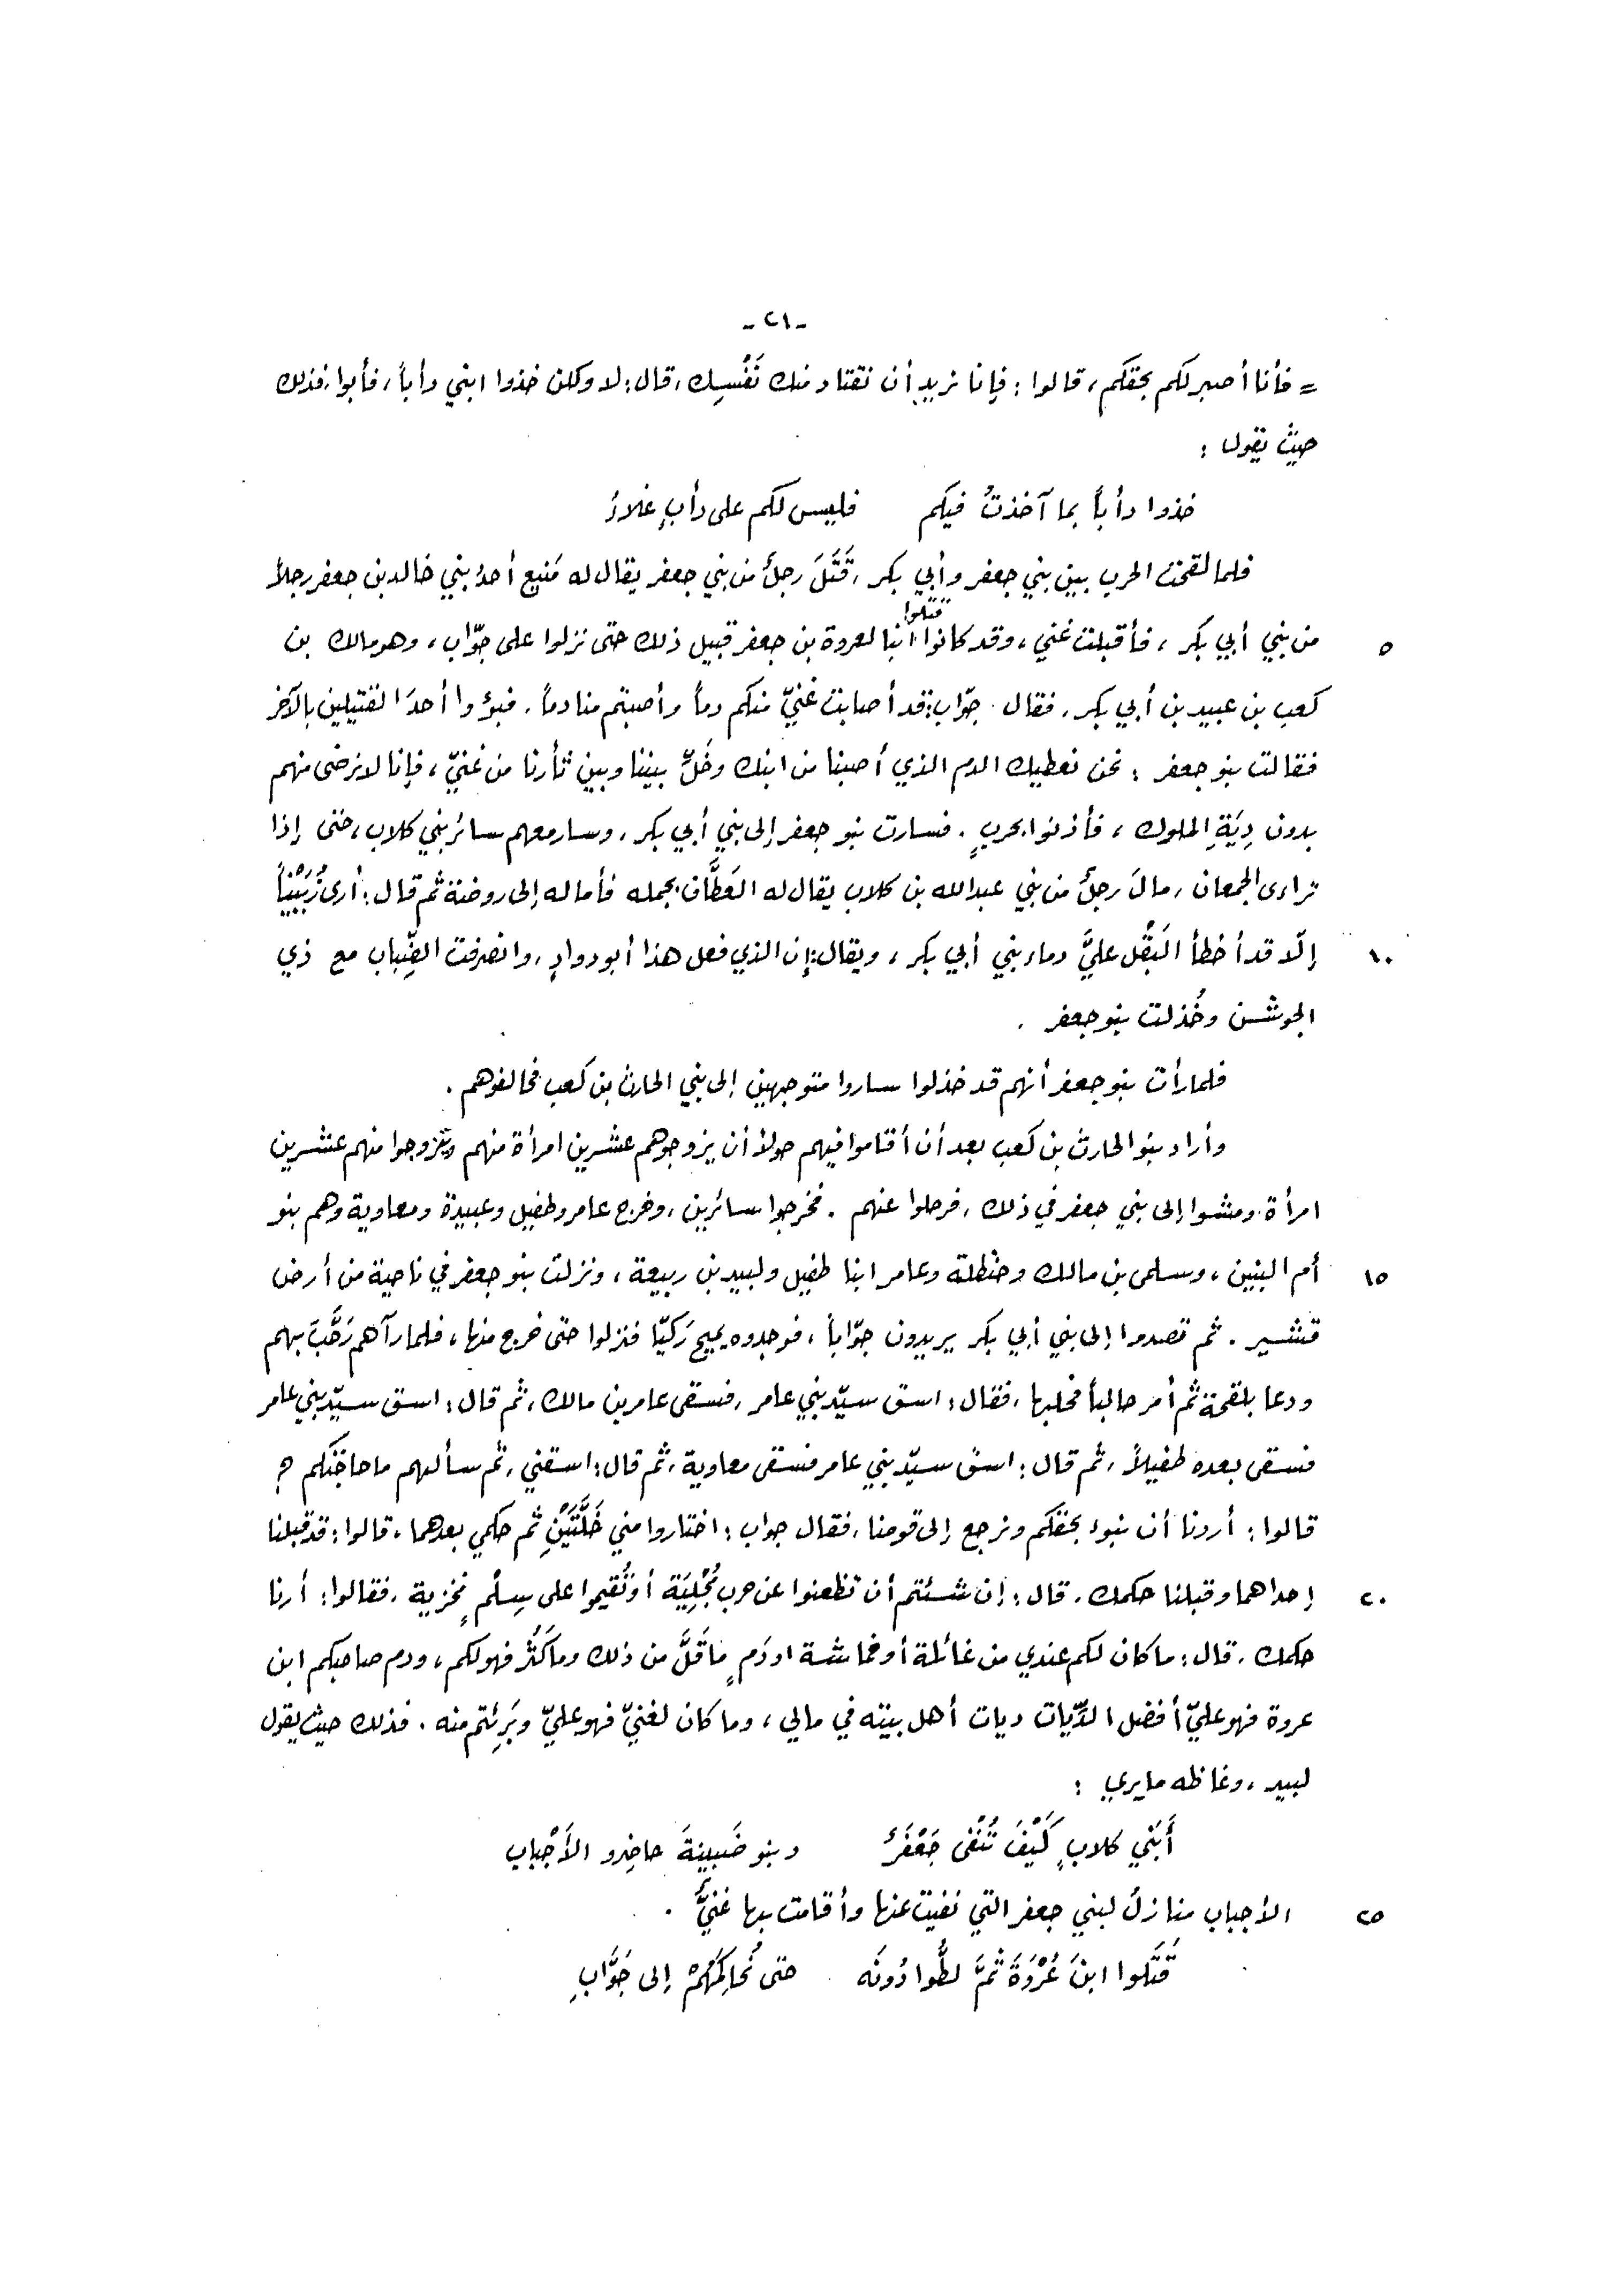 -٢١-
= فأنا أصير لكم بحقكم، قالوا: فإنا نريد أن نقتاد منك نَفْسِك، قال: لا ولكن خذوا ابني دأباً، فأبوا، فذلك
حيث يقول:
خذوا دأباً بما آخذتُ فيكم   فليس لكم على دأبٍ غلاءُ
فلما لقحت الحرب بين بني جعفر وأبي بكر، قَتَلَ رجلٌ من بني جعفر يقال له مَنيع أحدُ بني خالد بن جعفر رجلاً
٥ من بني أبي بكر، فأقبلت غني، وقد كانوا قتلوا ابنا لعروة بن جعفر قبيل ذلك حتى نزلوا على جوّاب، وهو مالك بن
كعب بن عبيد بن أبي بكر. فقال جوّاب: قد أصابت غنيّ منكم دماً وأصبتم منا دماً، فبوُوا أحدَ القتيلين بالآخر
فقالت بنو جعفر: نحن نعطيك الدم الذي أصبنا من ابنك وخَلِّ بيننا وبين ثأرنا من غنيّ، فإنا لا نرضى منهم
بدون دِيَةِ الملوك، فأذنوا بحربٍ. فسارت بنو جعفر إلى بني أبي بكر، وسار معهم سائر بني كلاب، حتى إذا
تراءى الجمعان، مالَ رجلٌ من بني عبدالله بن كلاب يقال له العَطَّاف بجمله فأماله إلى روضة ثم قال: أرى زُبَيْباً
١٠ إلّا قد أخطأ البَقْل عليَّ دماء بني أبي بكر، ويقال: إن الذي فعل هذا أبو دوادٍ، وانصرفت الضِّباب مع ذي
الجوشن وخُذلت بنو جعفر.
فلما رأت بنو جعفر أنهم قد خذلوا ساروا متوجهين إلى بني الحارث بن كعب فحالفوهم.
وأراد بنو الحارث بن كعب بعد أن أقاموا فيهم حولاً أن يزوجوهم عشرين امرأة منهم ويتزوجوا منهم عشرين
امرأة، ومشوا إلى بني جعفر في ذلك، فرحلوا عنهم. فخرجوا سائرين، وخرج عامر وطفيل وعبيدة ومعاوية وهم بنو
١٥ أم البنين، وسلمى بن مالك وحنظلة وعامر ابنا طفيل ولبيد بن ربيعة، ونزلت بنو جعفر في ناحية من أرض
قشير. ثم قصدوا إلى بني أبي بكر يريدون جوّاباً، فوجدوه يميح رَكيّا فنزلوا حتى خرج منها، فلما رآهم رَحَّبَ بهم
ودعا بلقحة ثم أمر حالباً فحلبها، فقال: اسق سيّد بني عامر، فسقى عامر بن مالك، ثم قال: اسق سيّد بني عامر
فسقى بعده طفيلاً، ثم قال: اسق سيّد بني عامر فسقى معاوية، ثم قال: اسقني، ثم سألهم ما حاجَتكم؟
قالوا: أردنا أن نبوء بحقكم ونرجع إلى قومنا، فقال جواب: اختاروا مني خَلَّتَيْنِ ثم حكمي بعدهما، قالوا: قد قبلنا
٢٠ إحداهما وقبلنا حكمك. قال: إن شئتم أن تظعنوا عن حرب مُجْلِيَة أو تُقيموا على سِلْمٍ مخزية، فقالوا: أرنا
حكمك. قال: ما كان لكم عندي من غائلة أو خماشة او دَمٍ ما قَلَّ من ذلك وما كَثُر فهو لكم، ودم صاحبكم ابن
عروة فهو عليّ أفضل الدِّيات ديات أهل بيته في مالي، وما كان لغنيّ فهو عليّ وبَرِئتم منه. فذلك حيث يقول
لبيد، وغاظه ما يرى:
أَبَني كلابٍ كَيْفَ تُنْفى جَعْفَرٌ   وبنو ضَبينةَ حاضِرو الأَجْبابِ
٢٥ الأجباب منازلُ لبني جعفر التي نفيت عنها وأقامت بها غنيٌّ.
قَتَلوا ابنَ عُرْوَةَ ثمَّ لطُّوا دُونَه   حتى نُحاكِمَهُمْ إلى جَوَّابِ